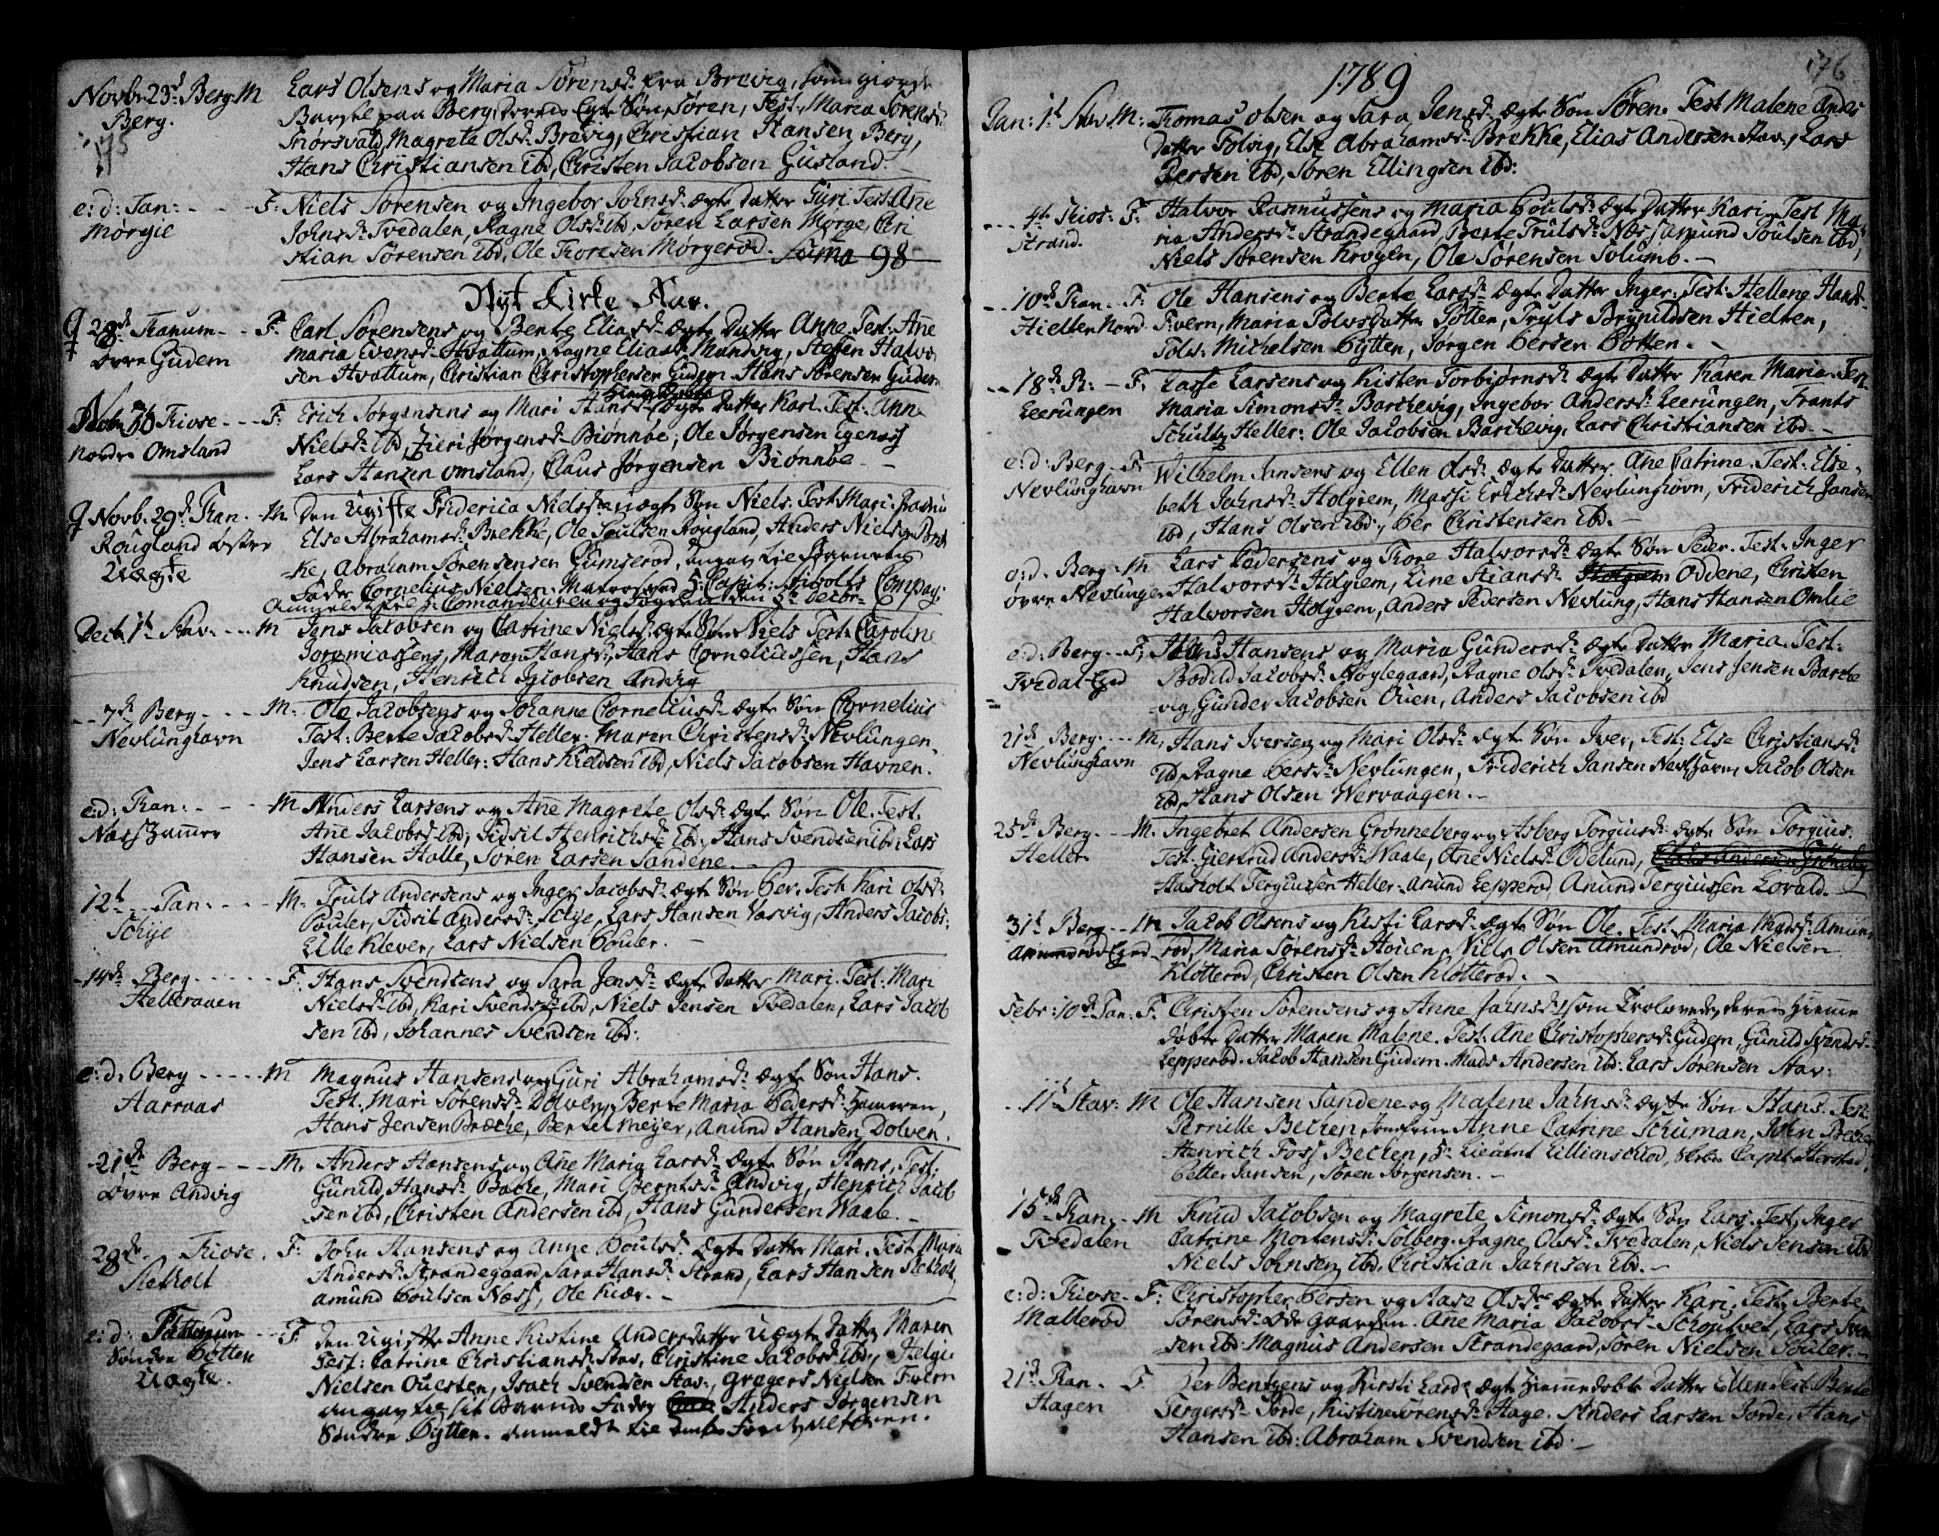 Novbr 23d Berg. M Lars Olsens og Maria Sørensd. fra Brevig, som giorde
Berg. Barsel paa Berg, deres Egte Søn Søren, Test: Maria Sørensd.
175 Snørsvald, Magrete Olsd. Brevig, Christian Hansen Berg,
Hans Christiansen ibd, Christen Jacobsen Gusland.
e: d: Tan: - - - F: Niels Sørensen og Ingebor Johnsd. ægte Datter Guri Test: Ane
Mørgie Johnsd. Tvedalen, Ragne Olsd. ibd, Søren Larsen Mørge, Chri
stian Sørensen ibd, Ole Thoresen Mørgerød. Suma 98
Nyt Kirke Aar.
28d Tanum - - F. Carl Sørensens og Bente Eliasd. ægte Datter Anne. Test: Ane
øvre Gudem Maria Evensd. Hvattum, Ragne Eliasd. Manvig, Steffen Halvor
sen Hvattum, Christian Christophersen Gudem. Hans Sørensen Gudem
Nov. 30 Kiose - - - F: Erich Jørgensens og Mari Hansd. Ægte Datter Kari. Test: Anne
Nordre Omsland Nielsd. ibd, Jørgensd. Biønnbe, Ole Jørgensen
Lars Hansen Omsland, Claus Jørgensen Biønnbe
Novb. 29d Tan. - M. Den ugifte Friderica Nielsd. uægte Søn Niels. Test: Mari Rasmu
Rougland østre Else Abrahamsd. Brekke, Ole Poulsen Rougland, Anders Nielsen Brek
Uægte ke, Abraham Sørensensen Gumserød, angav til Barnets
Fader Cornelius Nielsen. Matros ved 5. Capit: Compag:
Anmeldt til Comandeuren og Fogden den 5te Decbr
Decb. 1t Stav. - - - M Jens Jacobsen og Catrine Nielsd. ægte Søn Niels Test: Caroline
Joremiassens, Maren Hansd., Hans Corneliussen, Hans
Knudsen, Henrich Jacobsen Andvig
- - 7d Berg - - - M. Ole Jacobsens og Johanne Corneliusd. Ægte Søn Cornelius
Nevlunghavn Test: Berte Jacobsd. Heller. Maren Christensd. Nevlungen,
Jens Larsen Heller: Hans Kieldsen ibd, Niels Jacobsen Havnen.
e: d: Tan: - - - M Anders Larsens og Ane Magrete Olsd. Ægte Søn Ole. Test.
Ane Jacobsd. ibd, Sidsil Henrichsd. ibd. Hans Svendsen ibd, Lars
Hansen Halle, Søren Larsen Sandene.
12t - Tan: - - - M. Truls Andersens og Inger Jacobsd. Ægte Søn Per. Test: Kari Olsd.
Schye Pouler, Sidsil Andersd. Schye, Lars Hansen Vasvig, Anders Jacobs:
Lille Klever, Lars Nielsen Pouler.
- 14d Berg - - - F: Hans Svendsens og Sara Jensd. Ægte Datter Mari. Test: Mari
Helleraaen Nielsd. ibd, Kari Svendsd. ibd, Niels Jensen Tvedalen, Lars Jacob
sen ibd, Johannes Svendsen ibd:
e: d: Berg - - - - M Magnus Hansens og Guri Abrahamsd. ægte Søn Hans.
Aarraas Test. Mari Sørensd. Dolven, Berte Maria Pedersd. Hameren,
Hans Jensen Bræche, Bertel Meyer, Amund Hansen Dolven.
- 21de Berg - - - M. Anders Hansens og Ane Maria Larsd. Ægte Søn Hans, Test:
øvre Andvig Gunild Hansd. Bache, Mari Berntsd. Andvig, Henrich Jacob
sen ibd, Christen Andersen ibd, Hans Gundersen Waale.
29de Kiose. F: John Hansens og Anne Poulsd. Ægte Datter Mari. Test Maria
Sletholt Andersd. Strandegaard, Sara Hansd. Strand, Lars Hansen Sletholt,
Amund Poulsen Næss, Ole Kiær.
e: d: Tanum - - F Den ugifte Anne Kistine Andersdatter uægte Datter Maren
Søndre Pøtten Test: Catrine Christiansd. Stav, Christine Jacobsd. ibd, Helgie
Uægte. Nielsen Ouesten, Isach Svendsen Stav:, Gregers Nielsen Fværn
angav til sit Barns Fader Anders Jørgensen
Søndre Pøtten. anmeldt til

176
1789
Jan: 1t Stav M: Thomas Olsen og Sara Jensd. ægte Søn Søren. Test Malene Anders
Datter Tolvig, Else Abrahamsd. Brekke, Elias Andersen Stav., Lars
Persen ibd, Søren Ellingsen ibd:
- - - 4t Kios: F. Halvor Rasmussens og Maria Poulsd. ægte Datter Kari. Test Ma
Strand. ria Andersd. Strandegaard, Berte Trulsd. Næs, Amund Poulsen ibd,
Niels Sørensen Krogen, Ole Sørensen Solumb.
- - 10d Tan. - F. Ole Hansens og Berte Larsd. Ægte Datter Inger. Test: Hellene Hansd.
Hielten Nord Fværn, Maria Tolvsdatter Pøtten, Truls Brynildsen Hielten,
Tolv: Michelsen Pøtten, Jørgen Persen Pøtten.
- - 18d B: - F. Lasse Larsens og Kisten Torbiørnsd. Ægte Datter Karen Maria. Test
Leerungen Maria Simonsd. Barthevig, Ingebor Andersd. Leerungen, Frants
Schultz Heller: Ole Jacobsen Barthevig, Lars Christiansen ibd.
e: d: Berg - F: Wilhelm Jansens og Ellen Olsd. ægte Datter Ane Catrine. Test: Else
Nevlunghavn beth Jahnsd. Holgiem, Massi Erichsd. Nevlunghavn, Friderich Jansen
ibd, Hans Olsen ibd, Per Christensen ibd.
e: d. Berg - M Lars Pedersens og Thore Halvorsd. Ægte Søn Peder. Test: Inger
øvre Nevlungen Halvorsd. Holgiem, Line Stiansd. Oddene, Christen
Halvorsen Holgiem, Anders Pedersen Nevlung, Hans Hansen Omlie
e: d: Berg - - F, Hans Hansens og Maria Gundersd. ægte Datter Maria. Test:
Tvedal Eged Bodild Jacobsd. Høylegaard, Ragne Olsd. Tvedalen, Jens Jensen Barthe
vig, Gunder Jacobsen Ouen, Anders Jacobsen ibd
21d Berg. - - - M. Hans Iversen og Mari Olsd. ægte Søn Iver, Test: Else Christiansd.
Nevlunghavn ibd, Ragne Persd. Nevlungen, Friderich Jansen Nevlhavn, Jacob Olsen
ibd, Hans Olsen Wervaagen.
25d Berg. - - M. Ingebret Andersen Grønneberg og Asberg Torgiusd. Ægte Søn Torgius.
Heller Test: Giertrud Andersd. Waale, Ane Nielsd. Ødelund,
Aasholt Tergiussen Heller. Amund Lepperød, Amund Tergiussen Lovald.
31t Berg - - M Jacob Olsens og Kisti Larsd. Ægte Søn Ole. Test. Maria Madsd. Amund
Amundrød Eged rød, Maria Sørensd. Houen, Niels Olsen Amundrød, Ole Nielsen
Kløtterød, Christen Olsen Kløtterød.
Febr: 10d Tan: F. Christen Sørensens og Anne Jahnsd., som Trolovede, deres Hiemme
døbte Datter Maren Malene. Test: Ane Christophersd. Gudem, Gunild Svendsd.
Lepperød. Jacob Hansen Gudem. Mads Andersen ibd. Lars Sørensen Stav:
- - 11t Stav: M Ole Hansen Sandene og Malene Jahnsd. ægte Søn Hans. Test:
Pernille Becken, Jomfrue Anne Catrine Schuman, John Becker
Henrich Foss Becken, Lieutnt Lillienschiold, Capt Harstad,
Petter Jansen, Søren Jørgensen.
15d Tan, - M Knud Jacobsen og Magrete Simonsd. Ægte Søn Lars. Test, Inger
Tvedalen Catrine Mortensd. Solberg. Ragne Olsd. Tvedalen, Niels Jensen ibd
Niels Johnsen ibd. Christian Jahnsen ibd.
e: d: Kiose - F: Christopher Persen og Aase Olsd. ægte Datter Kari. Test, Berte
Mallerød Sørensd. øde gaarden. Ane Maria Jacobsd. Schoutvet, Lars Sven
sen ibd: Magnus Andersen Strandegaard, Søren Nielsen Pouler.
21d Tan - F. Per Bentzens og Kirsti Larsd. Ægte Hiemmedøbte Datter Ellen Test: Berte
Hagen Tergersd. Jorde, Kistine Sørensd. Hage. Anders Larsen Jorde, Hans
Hansen ibd: Abraham Svendsen ibd.